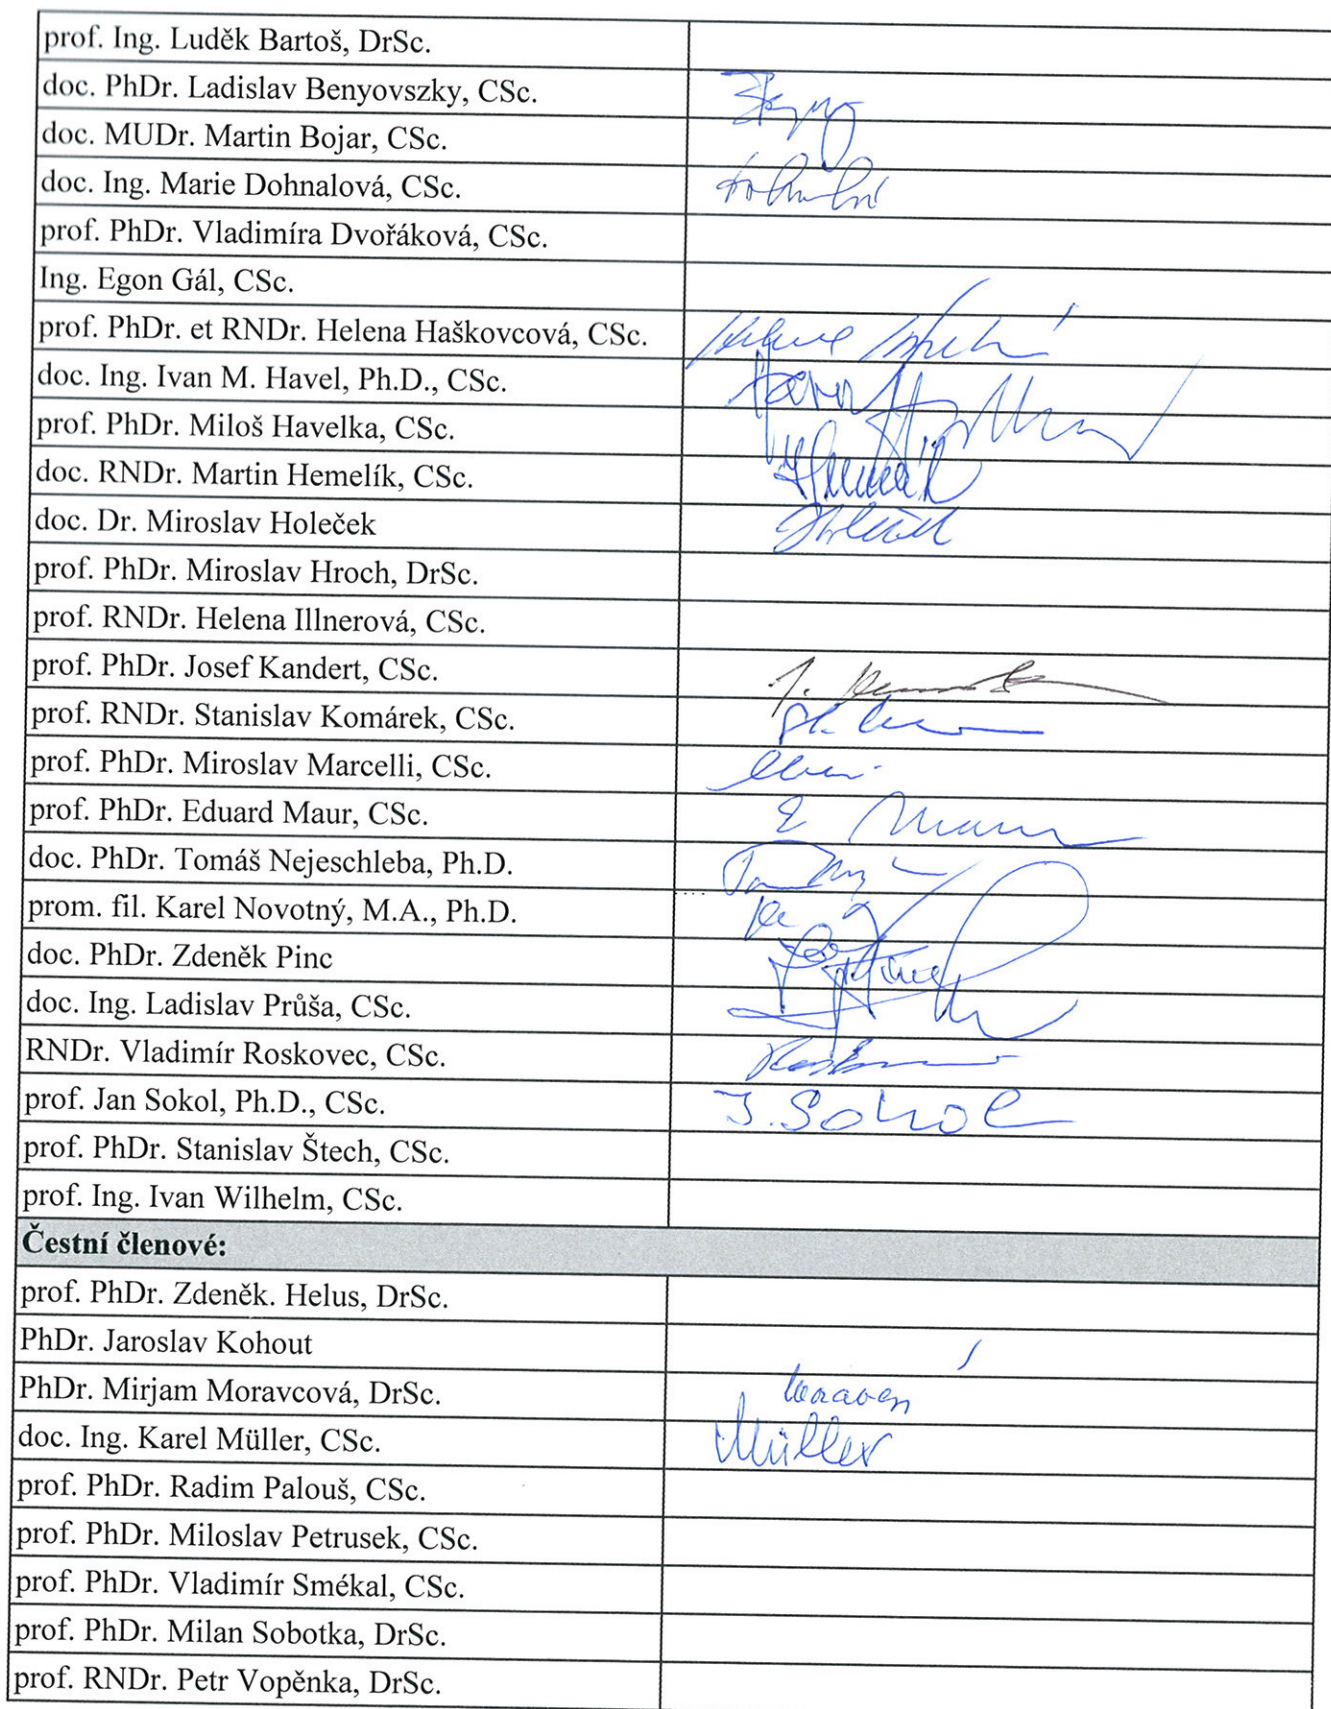 prof. Ing. Luděk Bartoš, DrSc.
doc. PhDr. Ladislav Benyovszky, CSc.
doc. MUDr. Martin Bojar, CSc.
doc. Ing. Marie Dohnalová, CSc.
prof. PhDr. Vladimíra Dvořáková, CSc.
Ing. Egon Gál, CSc.
prof. PhDr. et RNDr. Helena Haškovcová, CSc.
doc. Ing. Ivan M. Havel, Ph.D., CSc.
prof. PhDr. Miloš Havelka, CSc.
doc. RNDr. Martin Hemelík, CSc.
doc. Dr. Miroslav Holeček
prof. PhDr. Miroslav Hroch, DrSc.
prof. RNDr. Helena Illnerová, CSc.
prof. PhDr. Josef Kandert, CSc.
prof. RNDr. Stanislav Komárek, CSc.
prof. PhDr. Miroslav Marcelli, CSc.
prof. PhDr. Eduard Maur, CSc.
doc. PhDr. Tomáš Nejeschleba, Ph.D.
prom. fil. Karel Novotný, M.A., Ph.D.
doc. PhDr. Zdeněk Pinc
doc. Ing. Ladislav Průša, CSc.
RNDr. Vladimír Roskovec, CSc.
prof. Jan Sokol, Ph.D., CSc. J. Sokol
prof. PhDr. Stanislav Štech, CSc.
prof. Ing. Ivan Wilhelm, CSc.
Čestní členové:
prof. PhDr. Zdeněk. Helus, DrSc.
PhDr. Jaroslav Kohout
PhDr. Mirjam Moravcová, DrSc.
doc. Ing. Karel Müller, CSc. Müller
prof. PhDr. Radim Palouš, CSc.
prof. PhDr. Miloslav Petrusek, CSc.
prof. PhDr. Vladimír Smékal, CSc.
prof. PhDr. Milan Sobotka, DrSc.
prof. RNDr. Petr Vopěnka, DrSc.